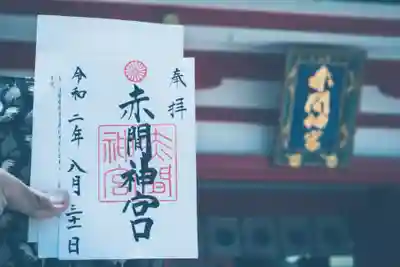 奉拝
赤間神宮
赤間
神宮
令和二年八月三十一日
赤間神宮